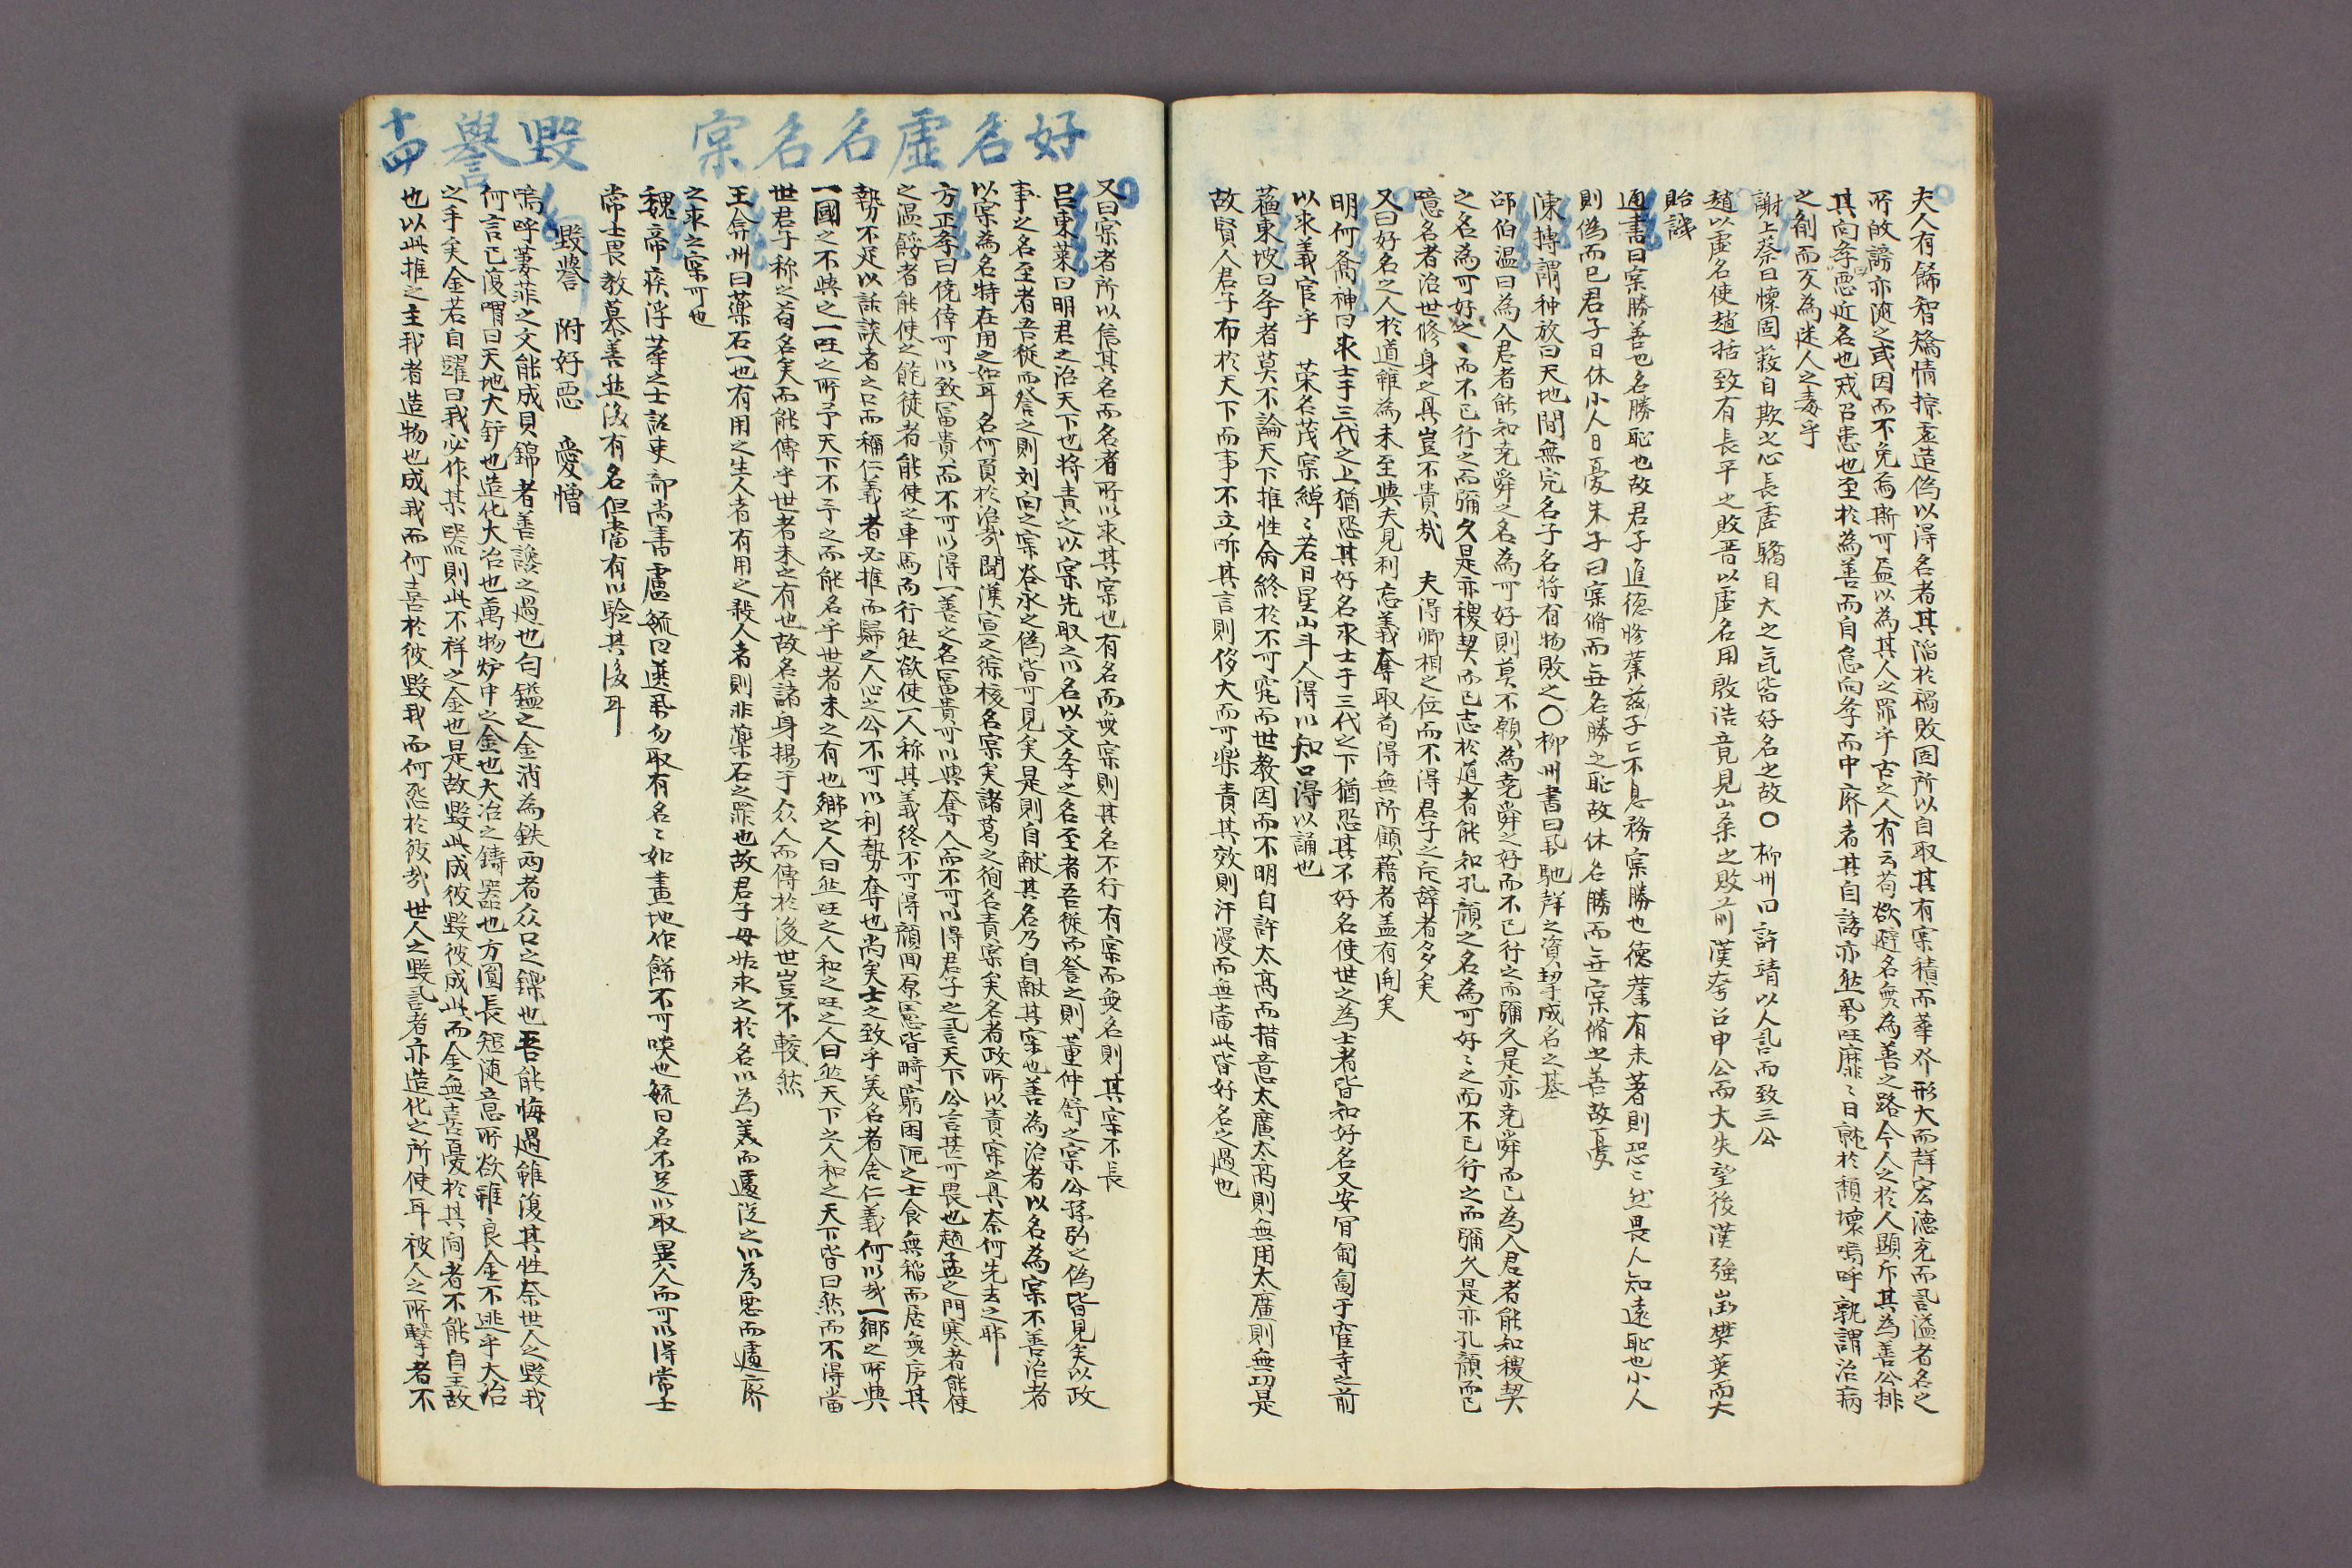 夫人有飾智矯情掠虛造偽以得名者其溢於禍敗固所以自取其有宲積而華外形大而聲宏徳充而㐌溢者名之
所故謗亦随之或因而不免焉斯可盡以為其人之罪乎古之人有云苟欲避名無為善之路今人之於人顯斥其為善公排
其向孝惡近名也戒召患也至於為善而自怠向孝而中廢者其自諉亦然風旺靡〻日就於頹壞嗚呼孰謂治病
之劑而反為迷人之毒乎
謝上蔡曰懷固蔽自欺之心長虛驕自大之氣皆好名之故〇柳卅曰許靖以人譽而致三公
趙以虛名使趙括致有長平之敗晋以虛名用殷浩竟見山桑之敗前漢夸召申公而大失望後漢強出樊英而大
貽譏
通書曰宲勝善也名勝恥也故君子進徳修業孳〻不息務宲勝也徳業有未著則恐〻然畏人知遠恥也小人
則偽而已君子日休小人日憂朱子曰宲脩而無名勝之恥故休名勝而無宲脩之善故憂
陳摶謂种放曰天地間無完名子名将有物敗之〇柳卅書曰風馳聲之資挈成名之基
邵伯温曰為人君者能知堯舜之名為可好則莫不願為堯舜之好而不已行之而彌久是亦堯舜而已為人君者能知稷契
之名為可好〻之而不已行之而彌久是亦稷契而已志於道者能知孔顏之名為可好〻之而不已行之而彌久是亦孔顏而已
噫名者治世修身之具豈不貴㦲 夫得卿相之位而不得君子之定辞者多矣
又曰好名之人於道雖為未至與夫見利忘義奪取苟得無所顧藉者盖有間矣
明何喬神曰求士于三代之上猶恐其好名求士于三代之下猶恐其不好名使世之為士者皆知好名又安肯匍匐于寉寺之前
以求義官乎 荣名茂宲綽〻若日星山斗人得以知口得以誦也
蘓東坡曰孝者莫不論天下推性命終於不可究而世教因而不明自許太高而措意太廣太高則無用太廣則無功是
故賢人君子布於天下而事不立听其言則侈大而可樂責其效則汗漫而無當此皆好名之過也
好名虛名名宲 毀譽 十四
又曰宲者所以信其名而名者所以求其宲也有名而無宲則其名不行有宲而無名則其宲不長
吕東莱曰明君之治天下也将責之以宲先取之以名以文孝之名至者吾從而詧之則董仲舒之宲公孫弘之偽皆見矣以政
事之名至者吾從而詧之則刘向之宲谷永之偽皆可見矣是則自献其名乃自献其宲也善為治者以名為宲不善治者
以宲為名特在用之如耳名何負於治㦲聞漢宣之綜核名宲矣諸葛之徇名責宲矣名者政所以責宲之具奈何先去之耶
方正孝曰僥倖可以致冨貴而不可以得一善之名冨貴可以與奪人而不可以得君子之㐌天下公言甚可畏也趙孟之門寒者能使
之温餒者能使之飽徒者能使之車馬而行然欲使一人称其義終不可得顏囬原憲皆畸窮困阨之士食無稲而居無序其
勢不足以訹談者之口而稱仁義者必推而歸之人心之公不可以利勢奪也尚矣士之致乎羙名者舍仁義何以㦲一鄉之所與
一國之不與之一旺之所予天下不予之而能名乎世者未之有也鄉之人曰然旺之人和之旺之人曰然天下之人和之天下皆曰然而不得當
世君子称之苟名矣而能傳乎世者未之有也故名諦身揚于众人而傳於後世豈不較然
王弇州曰薬石一也有用之生人者有用之殺人者則非薬石之罪也故君子毋姑求之於名以為羙而遽從之以為惡而遽廢
之求之宲可也
魏帝疾浮華之士詔吏部尚書盧毓曰選舉勿取有名〻如畫地作餅不可啖也毓曰名不足以取異人而可以得常士
常士畏教慕善然後有名但當有以驗其後耳
毀譽 附好惡 愛憎
嗚呼萋菲之文能成貝錦者善讒之過也匂鎰之金消為鉄両者众口之鑠也吾能悔過雖復其性奈世人之毀我
何言已復喟曰天地大鈩也造化大冶也萬物炉中之金也大冶之鑄噐也方圓長短随意所欲雖良金不逃乎大冶
之手矣金若自躍曰我必作某噐則此不祥之金也是故毀此成彼毀彼成此而金無喜憂於其间者不能自主故
也以此推之主我者造物也成我而何喜於彼毀我而何怒於彼㦲世人之毀㐌者亦造化之所使耳被人之所擊者不